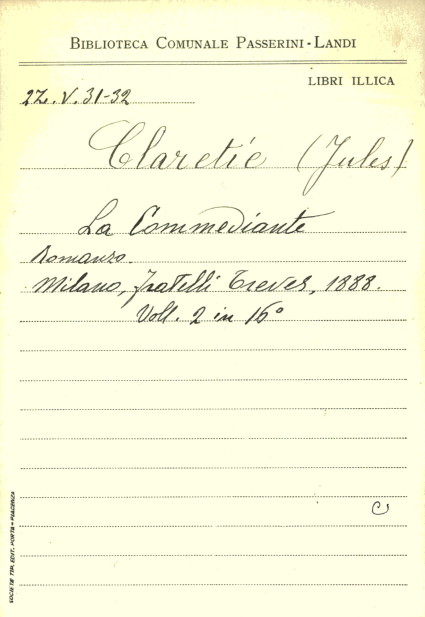 BIBLIOTECA COMUNALE PASSERINI-LANDI
LIBRI ILLICA
2Z. V. 31-32
Claretie (Jules)
La Commediante
Romanzo.
Milano, Fratelli Treves, 1888.
Voll. 2 in 16°
C
SOCIETÀ TIP. EDIT. PORTA - PIACENZA